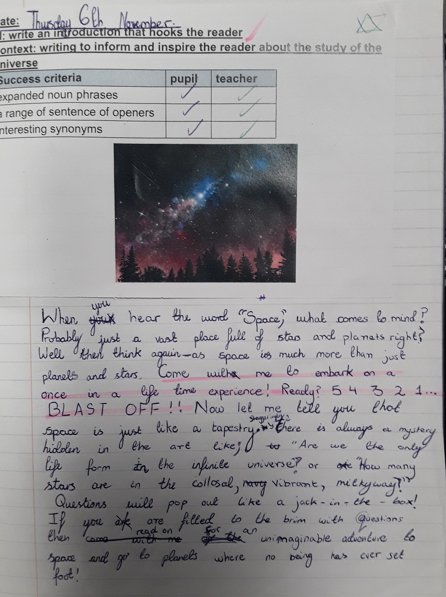 ate: Thursday 6th November.
I: write an introduction that hooks the reader
ontext: writing to inform and inspire the reader about the study of the
niverse
Success criteria pupil teacher
expanded noun phrases ✓ ✓
a range of sentence of openers ✓ ✓
nteresting synonyms ✓ ✓
When you hear the word "Space," what comes to mind?
Probably just a vast place full of stars and planets right?
Well then think again-as space is much more than just
planets and stars. Come with me to embark on a
once in a life time experience! Ready? 5 4 3 2 1...
BLAST OFF!! Now let me tell you that
space is just like a tapestry, there is always a mystery
hidden in the art like; "Are we the only
life form in the infinite universe?" or "How many
stars are in the collosal, vibrant, milkyway?"
Questions will pop out like a jack-in-the-box!
If you are filled to the brim with Questions
then read on for an unimaginable adventure to
space and go to planets where no being has ever set
foot!